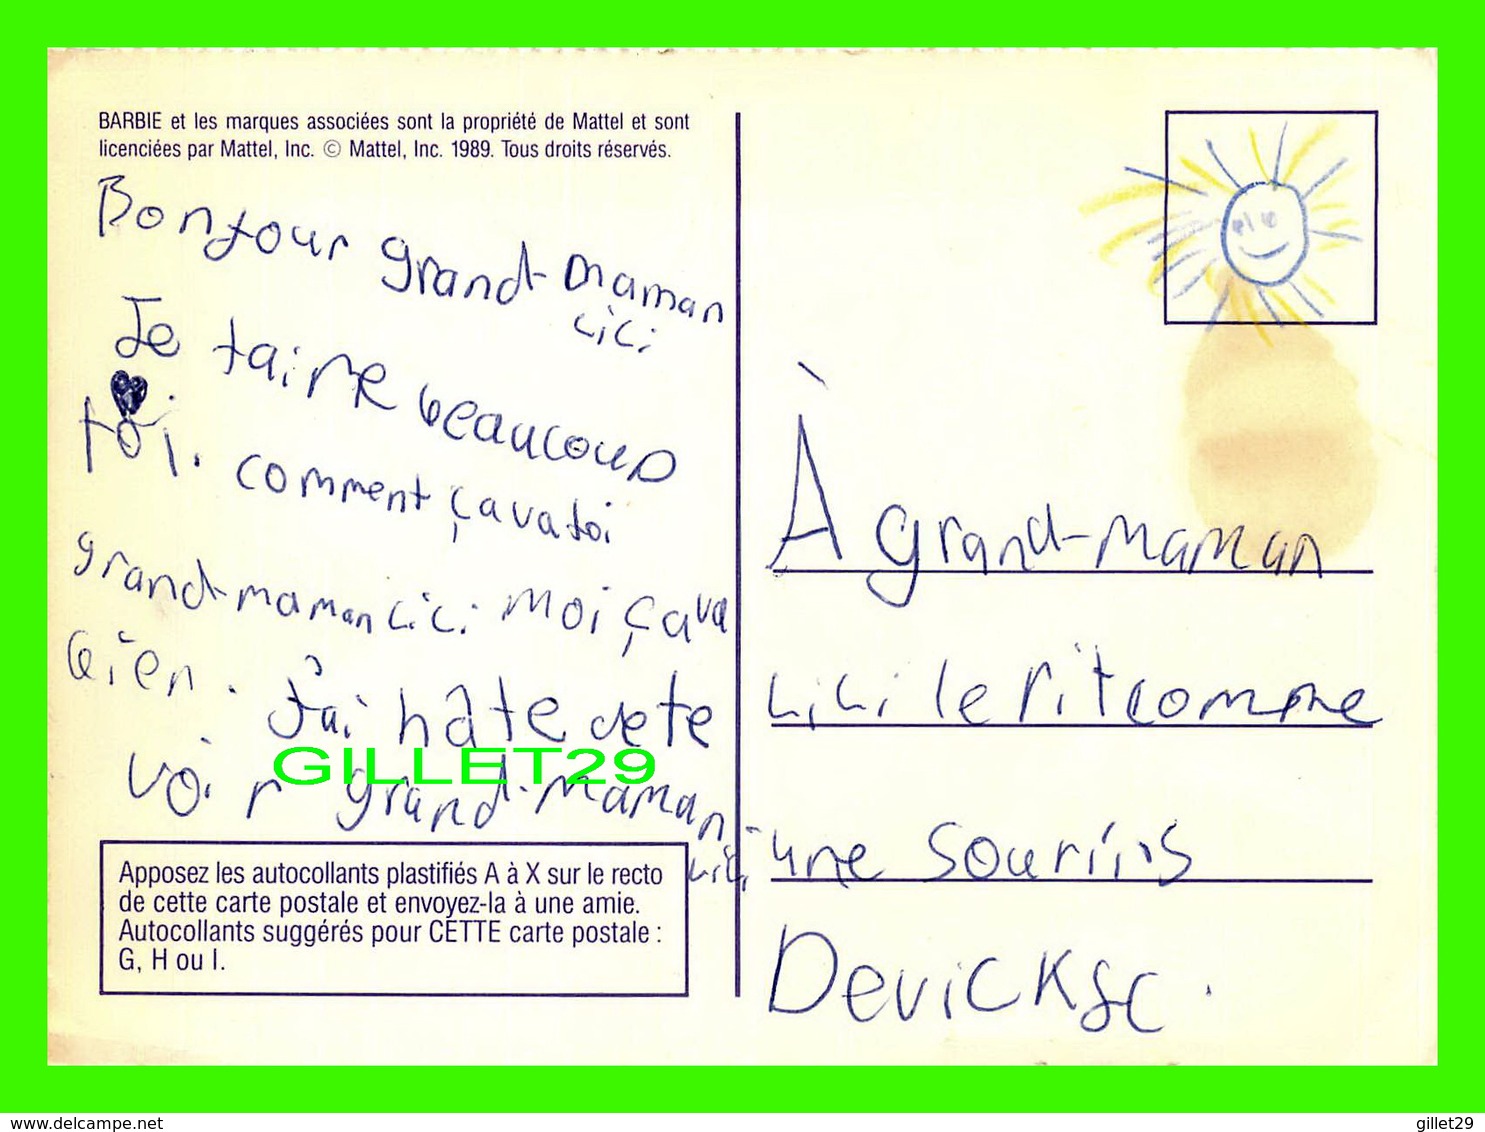 BARBIE et les marques associées sont la propriété de Mattel et sont
licenciées par Mattel, Inc. © Mattel, Inc. 1989. Tous droits réservés.
Bonjour grand-maman
Lili
Je taime beaucoup
toi. comment çava toi
grand-maman Lili moi çava
bien. J'ai hâte de te
voir grand-maman
Lili
GILLET29
Apposez les autocollants plastifiés A à X sur le recto
de cette carte postale et envoyez-la à une amie.
Autocollants suggérés pour CETTE carte postale :
G, H ou I.
À grand-maman
Lili le rit comme
une souriiis
gillet29
www.delcampe.net